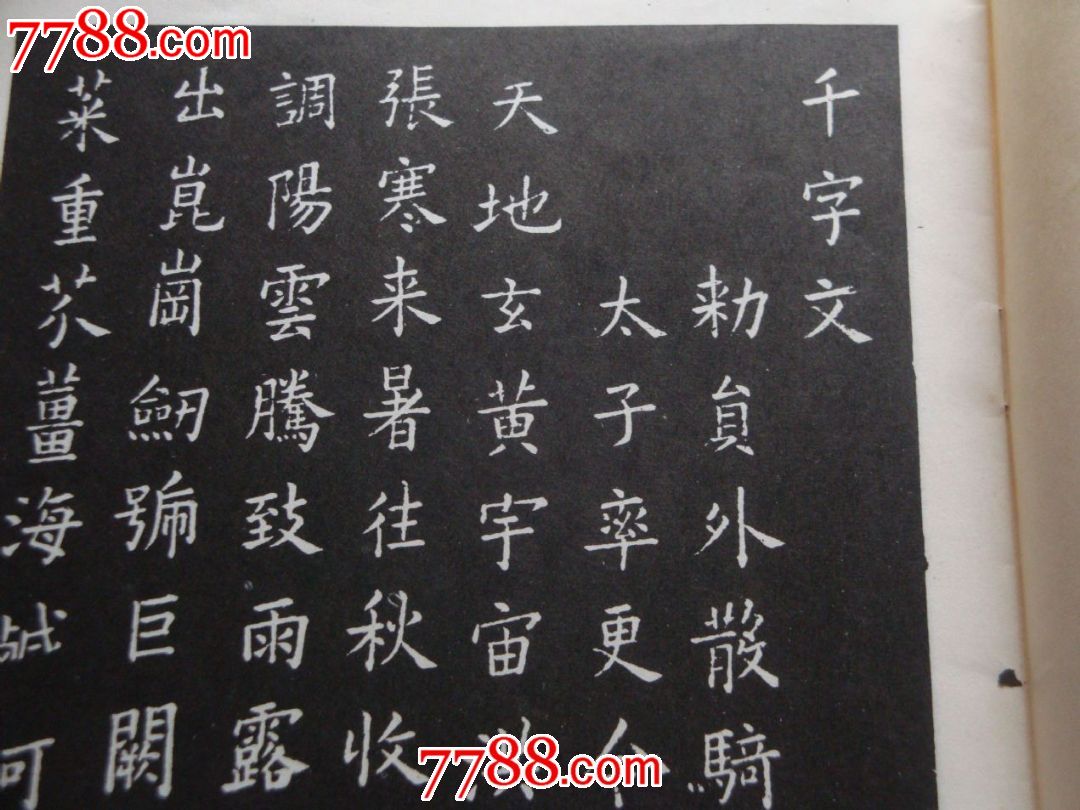 7788.com
千字文
勑貟外散騎
太子率更
天地玄黃宇宙
張寒来暑往秋收
調陽雲騰致雨露
出崑崗劒號巨闕
菜重芥薑海醎
7788.com